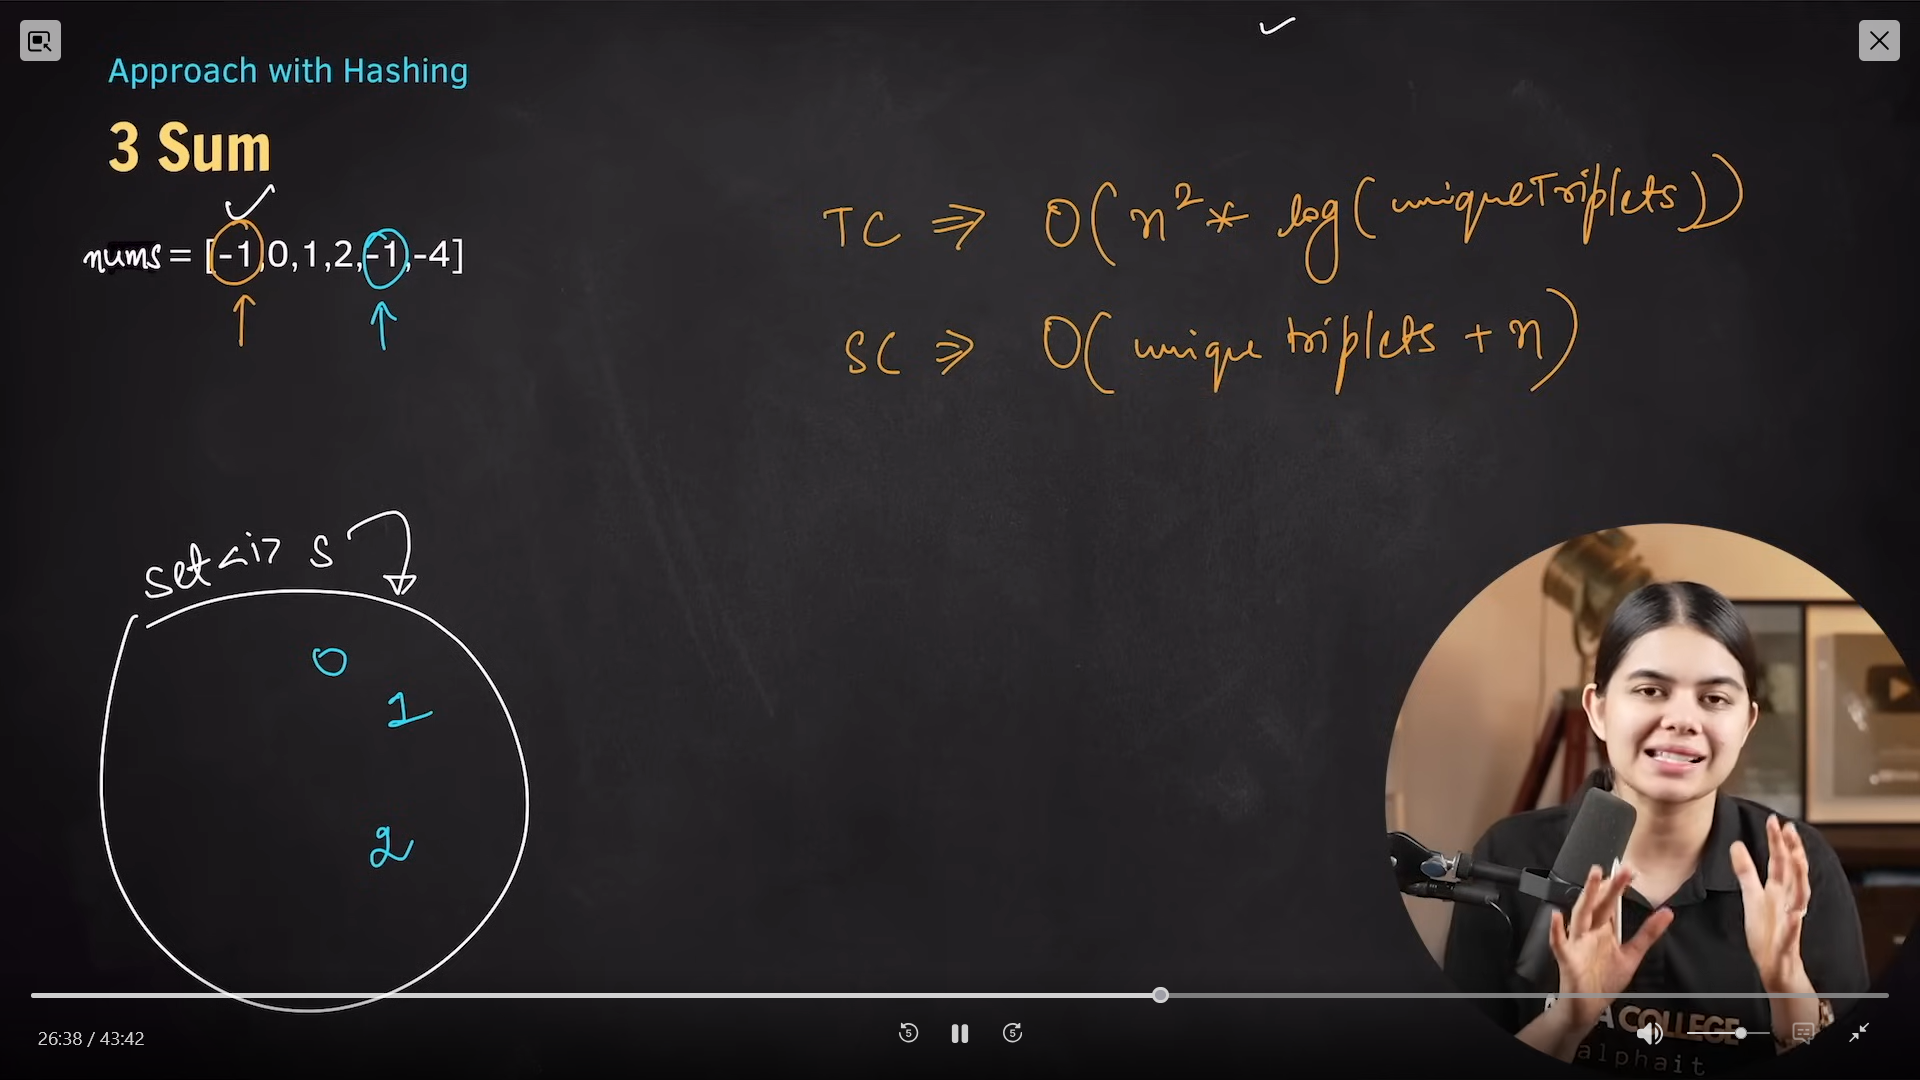 Approach with Hashing
3 Sum
nums = [-1,0,1,2,-1,-4]
TC ⇒ O(n² * log(uniqueTriplets))
SC ⇒ O(unique triplets + n)
set<i> s
0
1
2
5
5
26:38 / 43:42
COLLEGE
alphait